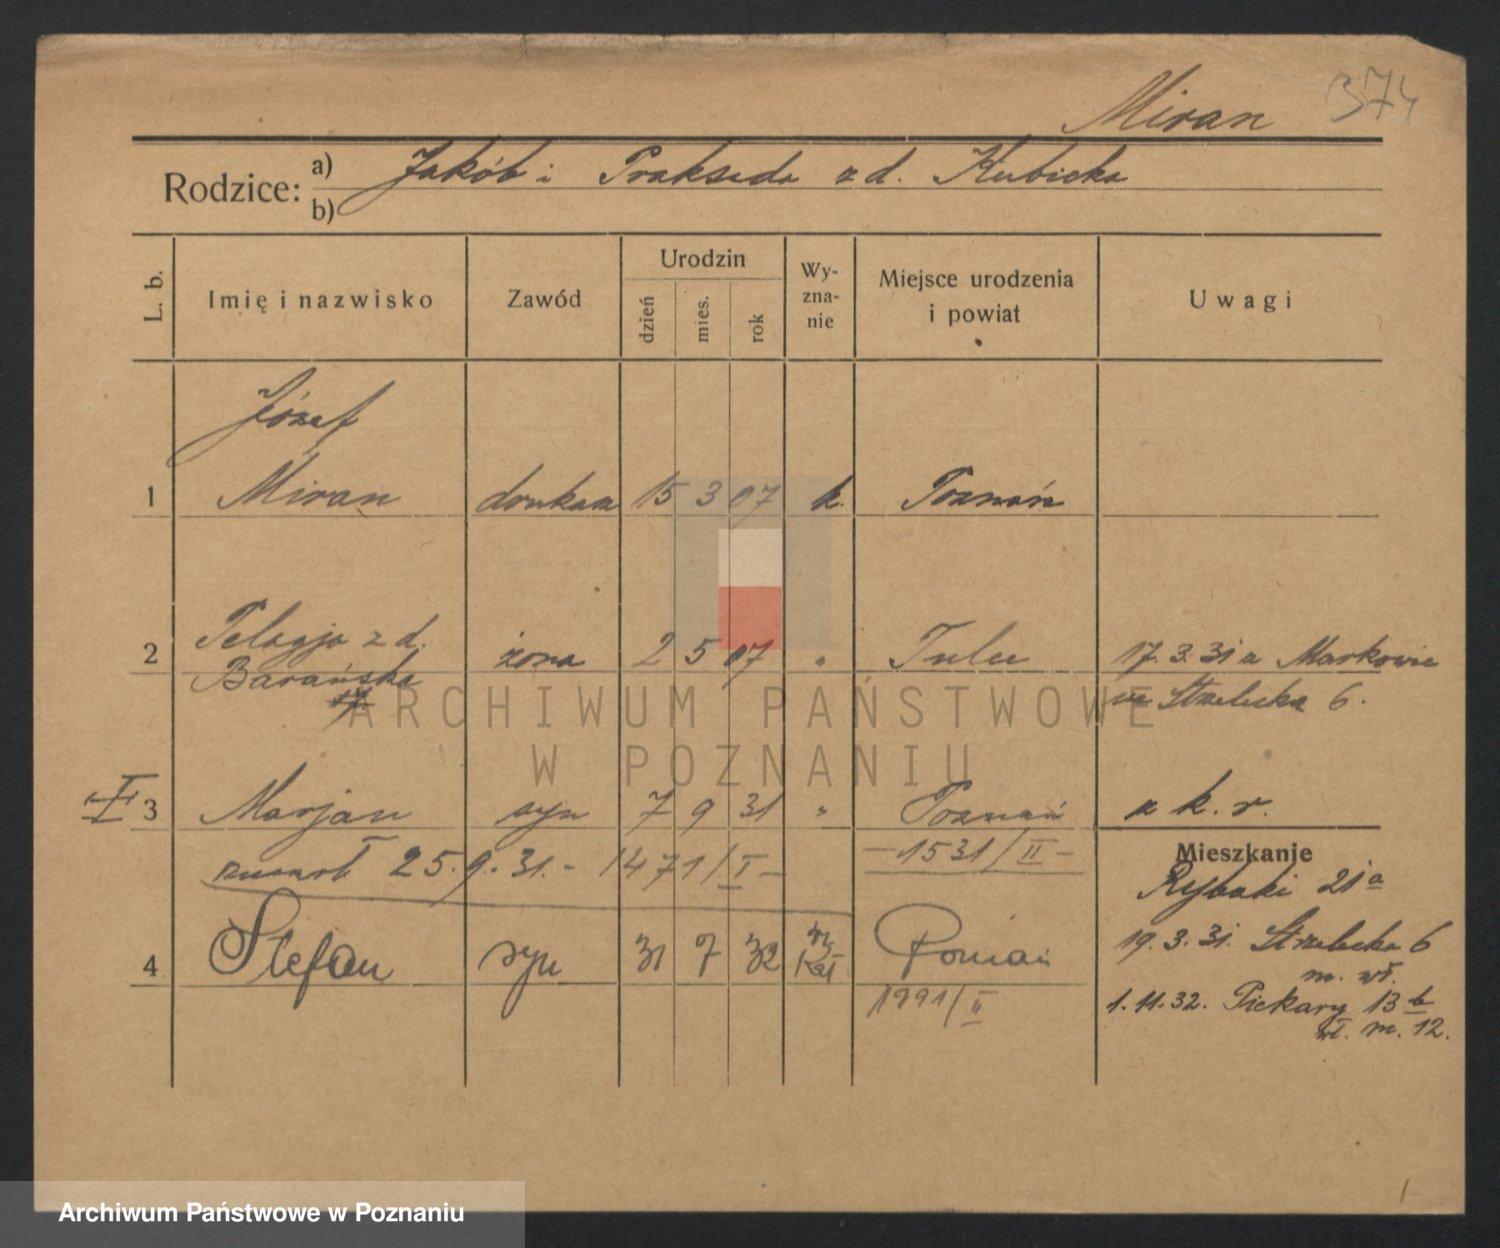 Miran 374
Rodzice: a) Jakób i Prakseda z d. Kubicka
b)
L. b. Imię i nazwisko Zawód Urodzin dzień mies. rok Wy-zna-nie Miejsce urodzenia i powiat Uwagi
Józef
1 Miran drukarz 15 3 07 k. Poznań
Pelagja z d.
2 Barańska żona 2 5 07 " Tulce 17.3.31 z Markowic
17 we Strzelecka 6.
ARCHIWUM PAŃSTWOWE
W POZNANIU
I 3 Marjan syn 7 9 31 " Poznań z k. r.
zmarł 25.9.31.- 1471/I- -1531/II-
Mieszkanie
Rybaki 21a
19.3.31. Strzelecka 6
m. wł.
4 Stefan syn 31 7 32 rz. kat Poznań
1991/II
1.11.32. Piekary 13b
wł. m. 12.
Archiwum Państwowe w Poznaniu